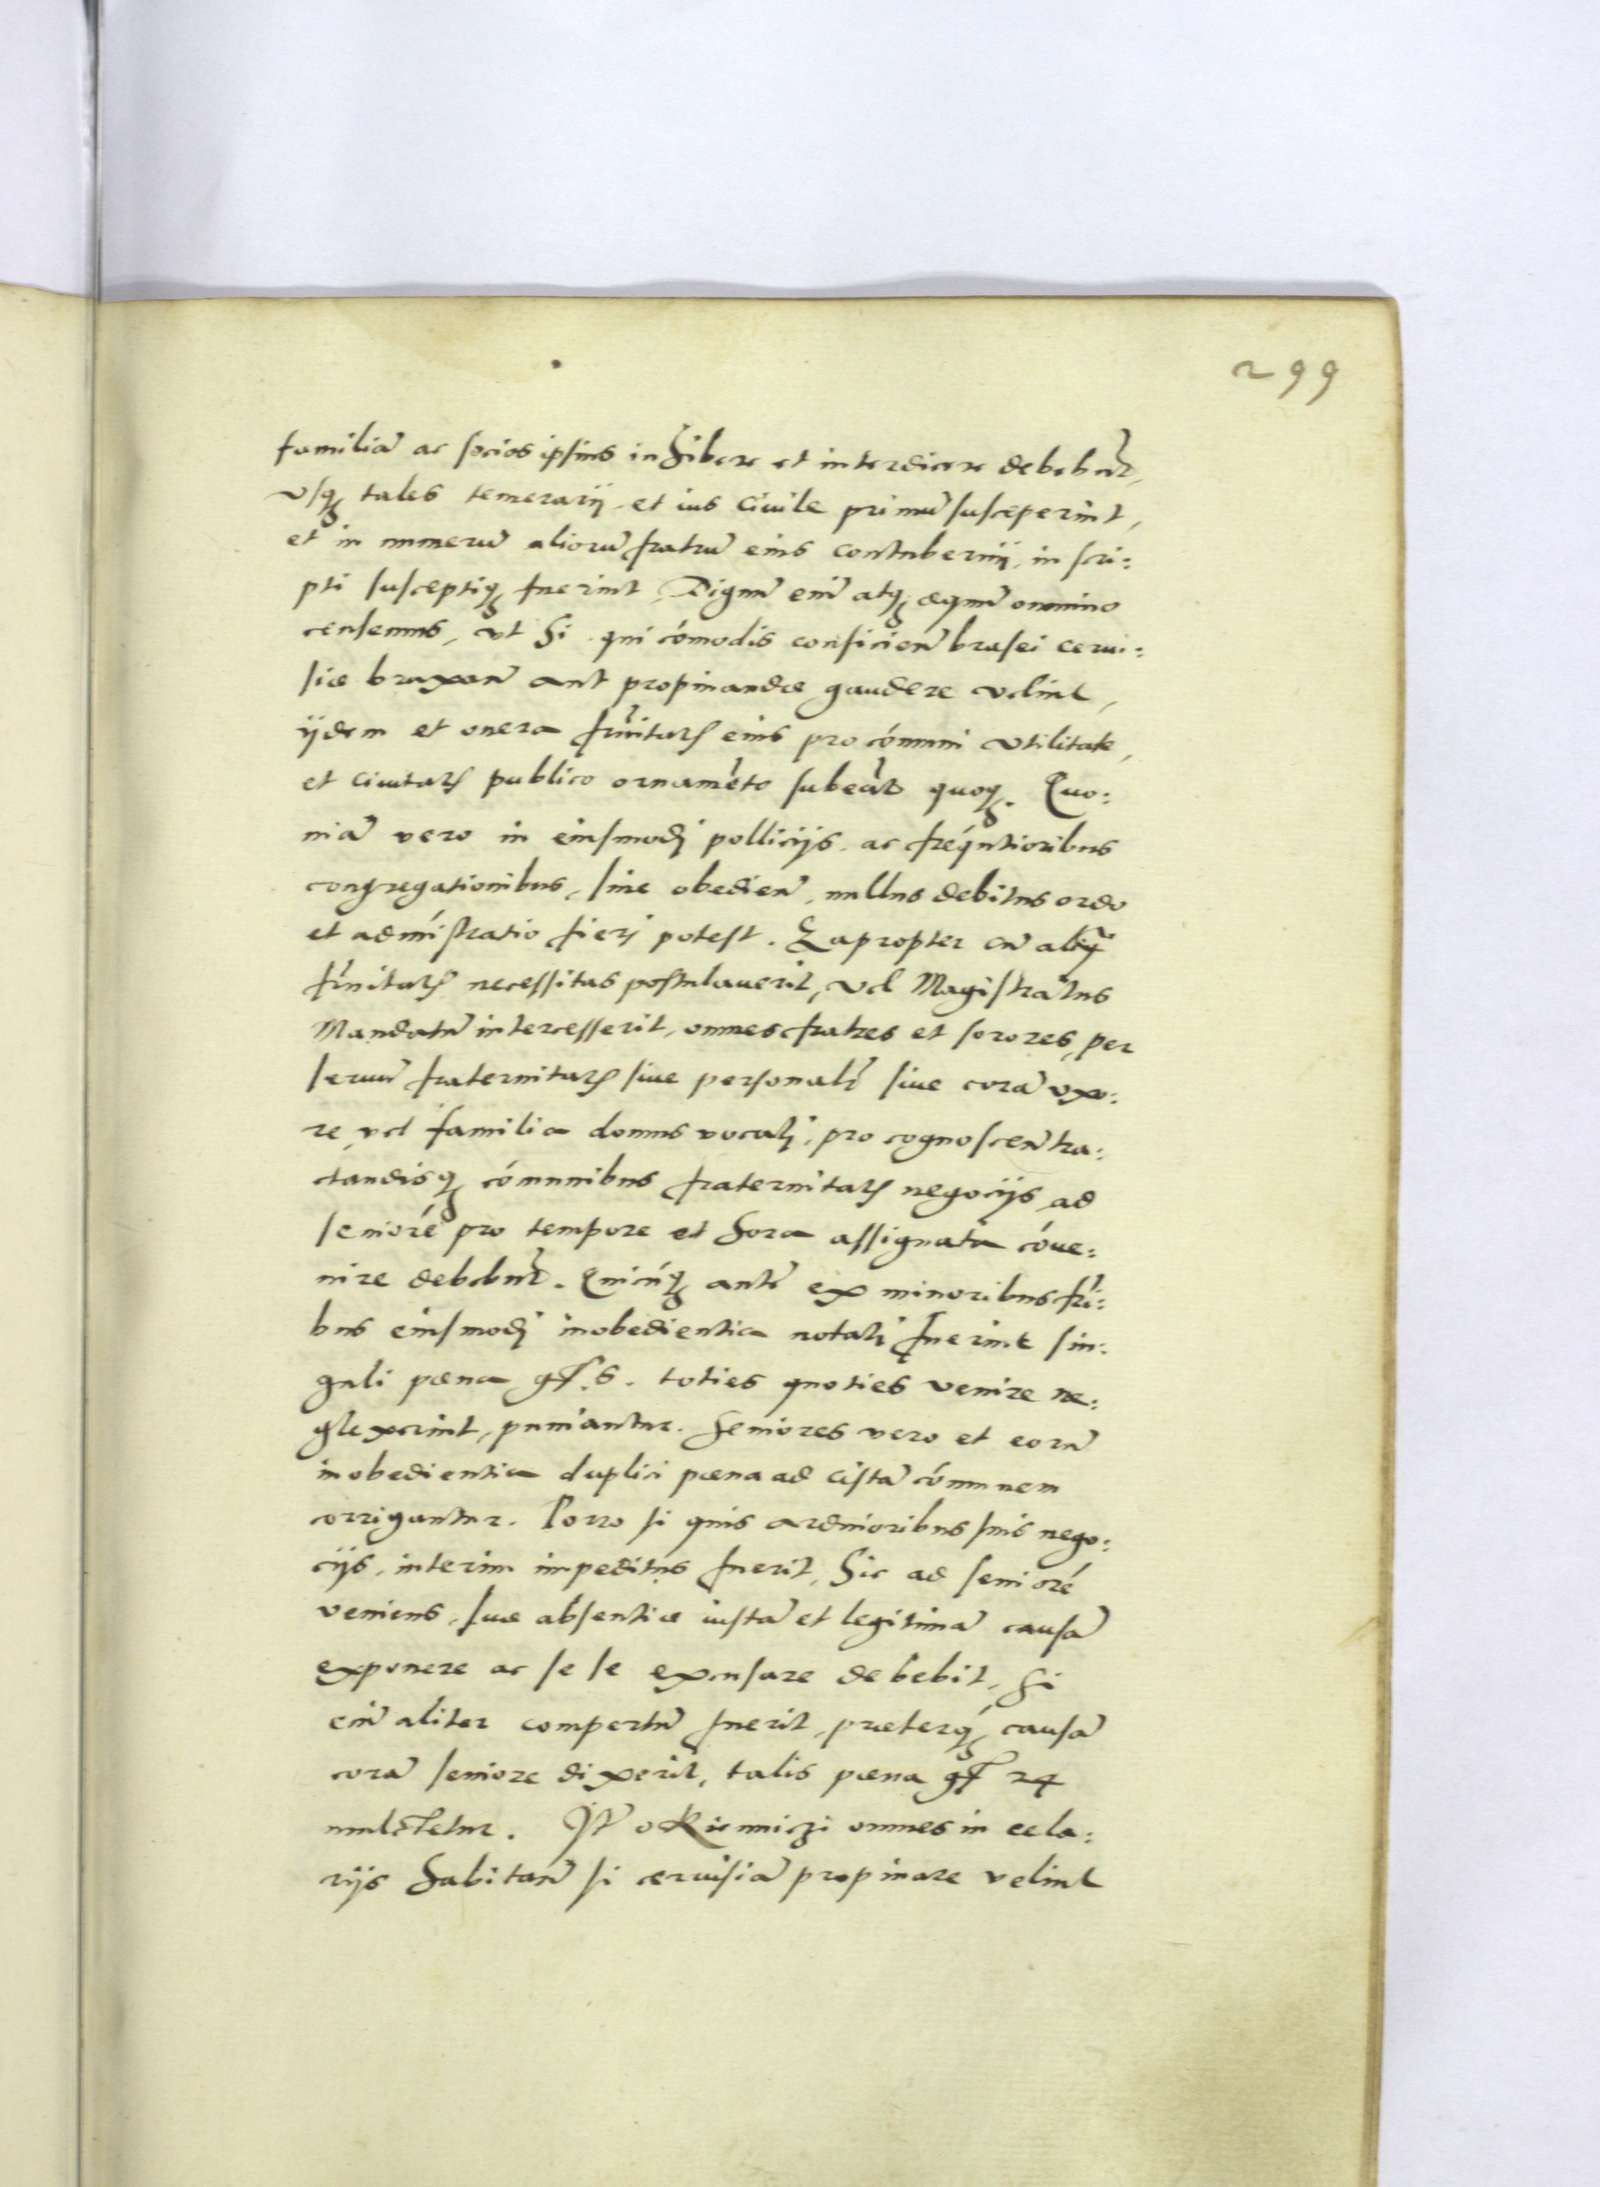 299
familiā ac socios ipsius inhibere et interdicere debebūt,
vsq; tales temerarij et ius Ciuile primū susceperint,
et in numerū aliorū fratrū eius contubernij, in scri:
pti susceptiq; fuerint, Dignū enī atq; æquū omnino
censemus, vt hi qui cōmodis conficien̄ brasei cerui:
siæ braxan̄ aut propinandæ gaudere velint,
ijdem et onera frn̄itatis eius pro cōmuni vtilitate,
et ciuitatis publico ornamēto subeāt quoq;. Quo:
niā vero in eiusmodi pollicijs ac freqūtioribus
congregationibus, sine obedien̄, nullus debitus ordo
et admīstratio fieri potest. Eapropter cū aliq̄
frn̄itatis necessitas postulauerit, vel Magistratus
Mandatū intercesserit, omnes fratres et sorores, per
seruū fraternitatis siue personalr̄ siue corā vxo:
re, vel familia domus vocati, pro cognoscen̄ tra:
ctandisq; cōmunibus fraternitatis negocijs ad
seniorē pro tempore et hora assignata cōue:
nire debebūt. Quicūq; autē ex minoribus frī:
bus eiusmodi inobedientia notati fuerint sin:
guli pœna gr. 6. toties quoties venire ne:
glexerint, puniantur. Seniores vero et eorū
inobedientia duplici pœna ad cistā cōmunem
corrigantur. Porro si quis arduioribus suis nego:
cijs, interim impeditus fuerit, hic ad seniorē
veniens, suæ absentiæ iustā et legitimā causā
exponere ac se se excusare debebit, Si
enī aliter compertū fuerit, præterq; causā
corā seniore dixerit, talis pœna gr 24
mulctetur. Itē okienniczi omnes in cela:
rijs habitan̄ si ceruisiā propinare velint